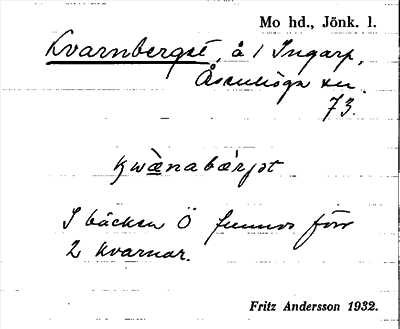 Mo hd., Jönk. l.
Kvarnberget, å 1 Ingarp,
Åsenhöga sn.
73.
kwànabǽrjət
I bäcken Ö funnos förr
2 kvarnar.
Fritz Andersson 1932.